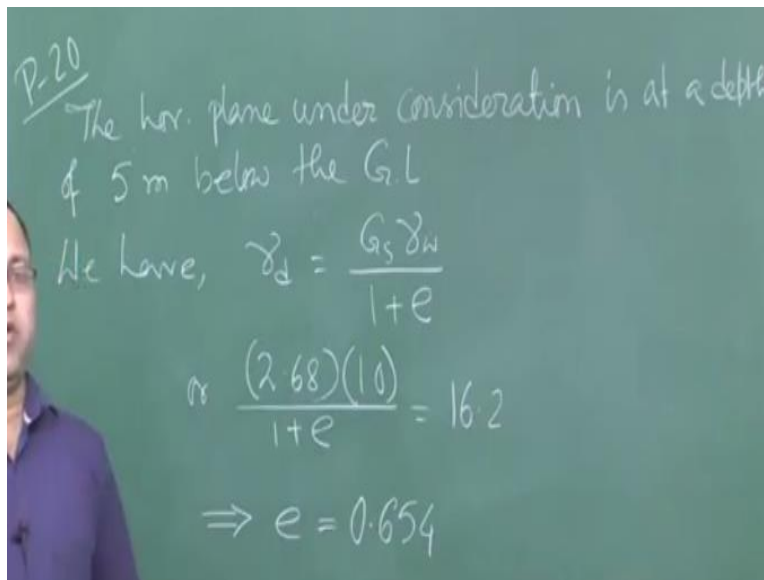 P-20
The hor. plane under consideration is at a depth
of 5 m below the G.L
We have, γd = Gsγw / 1+e
or (2.68)(10) / 1+e = 16.2
⇒ e = 0.654